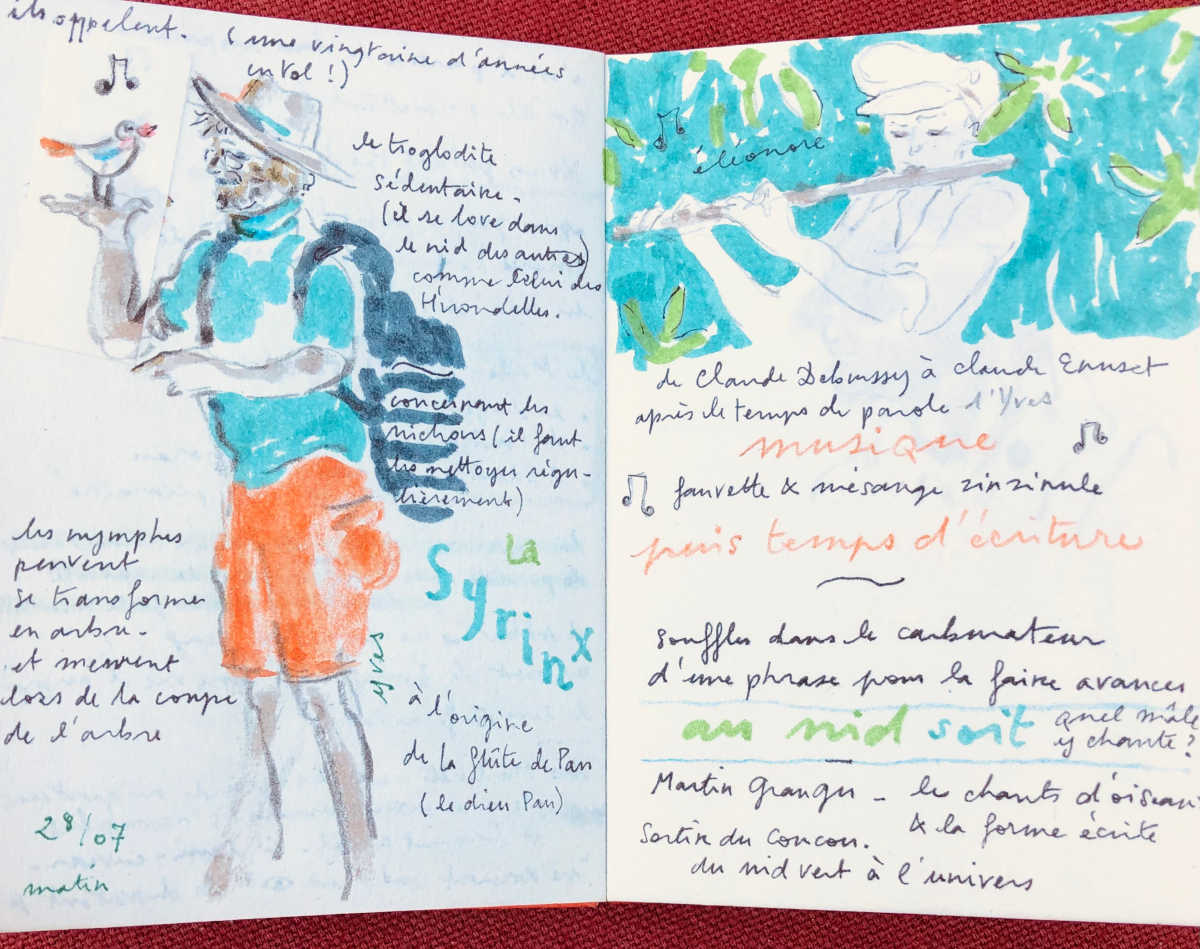 ils appelent. (une vingtaine d'années
en vol !)
le troglodite
sédentaire -
(il se love dans
le nid des autres)
comme celui des
Hirondelles.
concernant les
nichoirs (il faut
les nettoyer régu-
lièrement)
les nymphes
peuvent
se transformer
en arbre -
et meurent
lors de la coupe
de l'arbre
La
Syrinx
yves
à l'origine
de la flûte de Pan
(le dieu Pan)
28/07
matin
éléonore
de Claude Debussy à Claude
après le temps de parole d'Yves
musique
fauvette & mésange zinzinule
puis temps d'écriture
souffler dans le carburateur
d'une phrase pour la faire avancer
au nid soit quel mâle
y chante ?
Martin Granger - les chants d'oiseau
& la forme écrite
Sortir du cocon.
du nid vert à l'univers